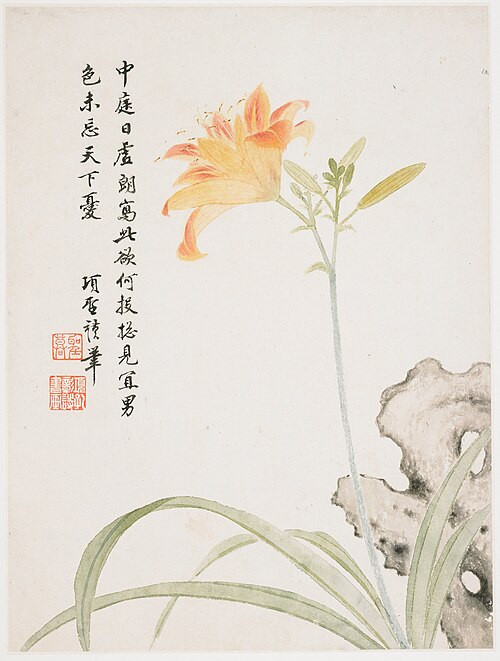 中庭日虚朗寫此欲何投摠見宜男
色未忘天下憂
項聖謨筆